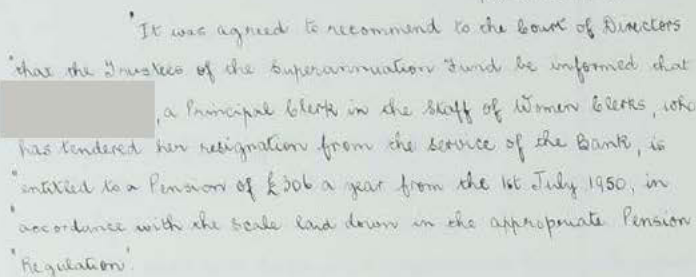 "It was agreed to recommend to the Court of Directors
"that the Trustees of the Superannuation Fund be informed that
, a Principal Clerk in the Staff of Women Clerks, who
has tendered her resignation from the service of the Bank, is
"entitled to a Pension of £306 a year from the 1st July 1950, in
"accordance with the scale laid down in the appropriate Pension
"Regulation".